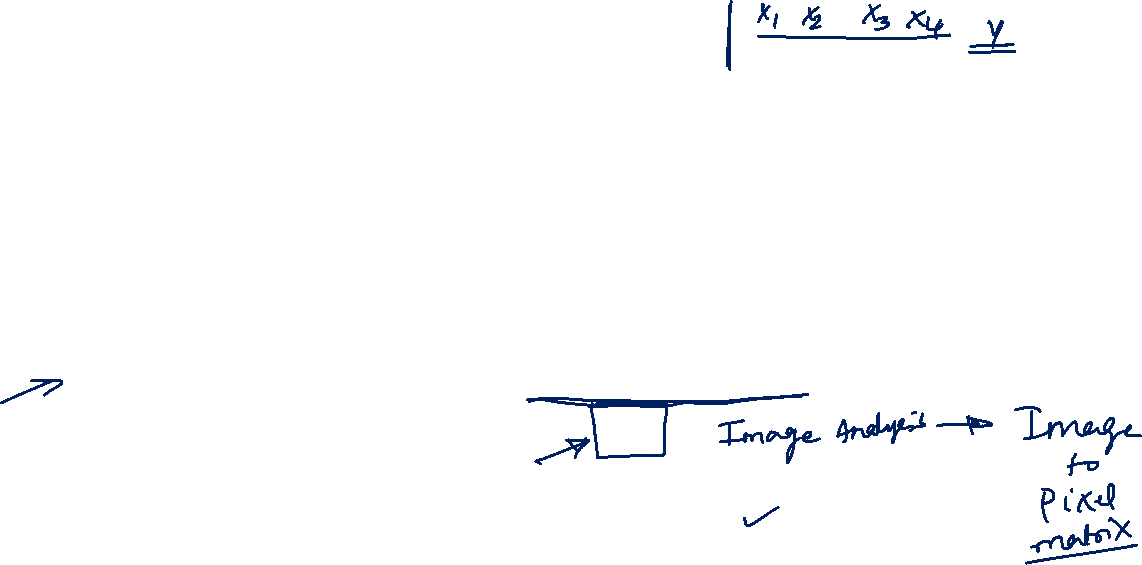 x1 x2 x3 x4 y
Image Analysis → Image
to
pixel
matrix